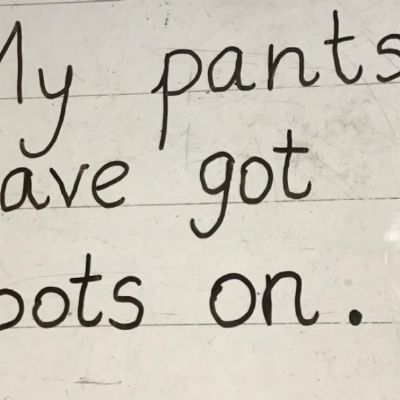 My pants
ave got
on.